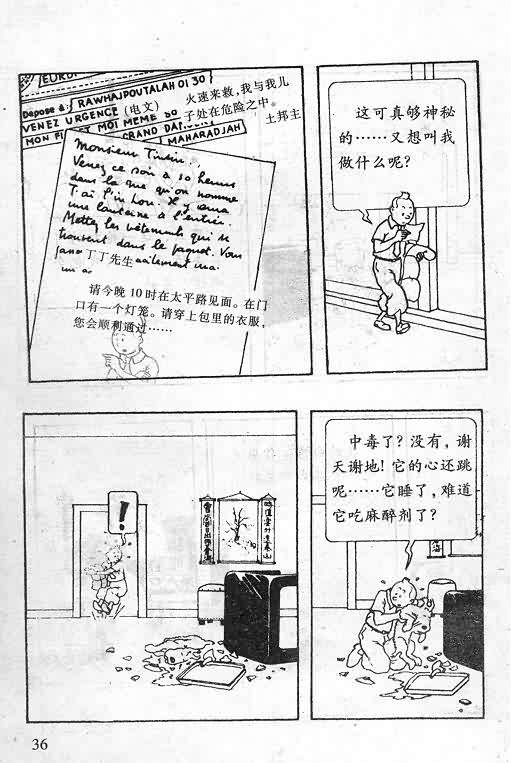 EURO
Depose à: RAWHAJPOUTALAH 01 30
VENEZ URGENCE (电文)
MON FI ET MOI MEME DO
GRAND DAN
MAHARADJAH
火速来救,我与我儿
子处在危险之中。
土邦主
Monsieur Tintin,
Venez ce soir à 10 heures
dans la rue qu'on nomme
T'ai P'in Lou. Il y aura
une lanterne à l'entrée.
Mettez les vêtements qui se
trouvent dans le paquet. Vous
丁丁先生
请今晚10时在太平路见面。在门
口有一个灯笼。请穿上包里的衣服,
您会顺利通过……
这可真够神秘
的……又想叫我
做什么呢?
!
中毒了?没有,谢
天谢地!它的心还跳
呢……它睡了,难道
它吃麻醉剂了?
36